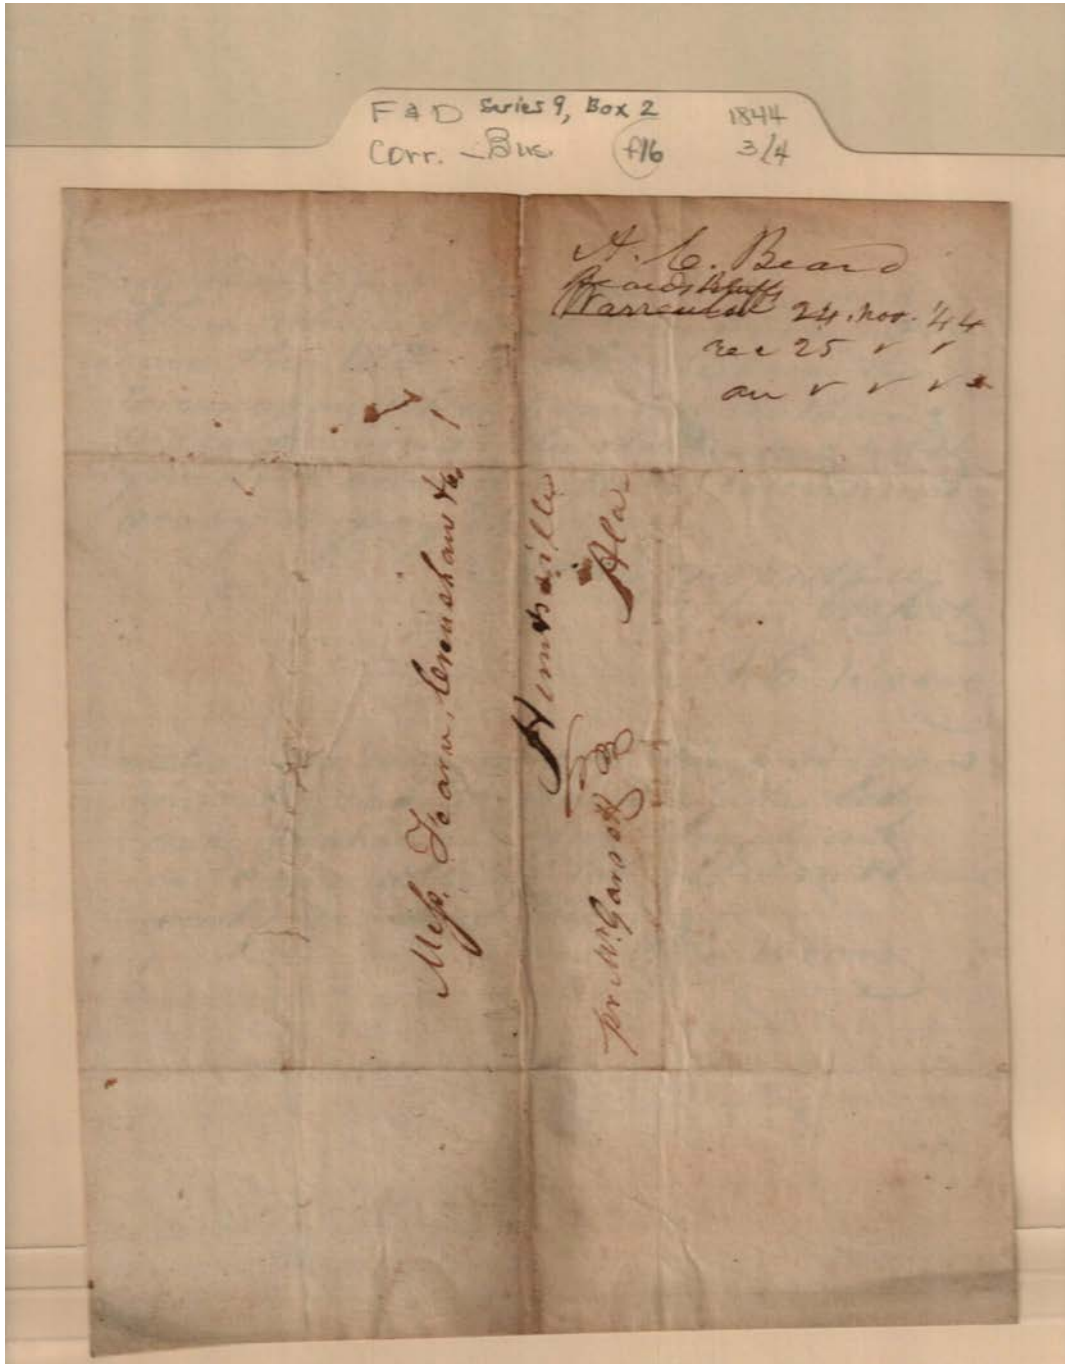 F & D Series 9, Box 2 1844
Corr. - Bus. f16 3/4
A. C. Beard
Beards Bluff
Warrenton 24. Nov. '44
rec 25 " "
an " " "
Mess. Fearn, Crenshaw & Co
Huntsville
Ala
pr Mr. Garrett